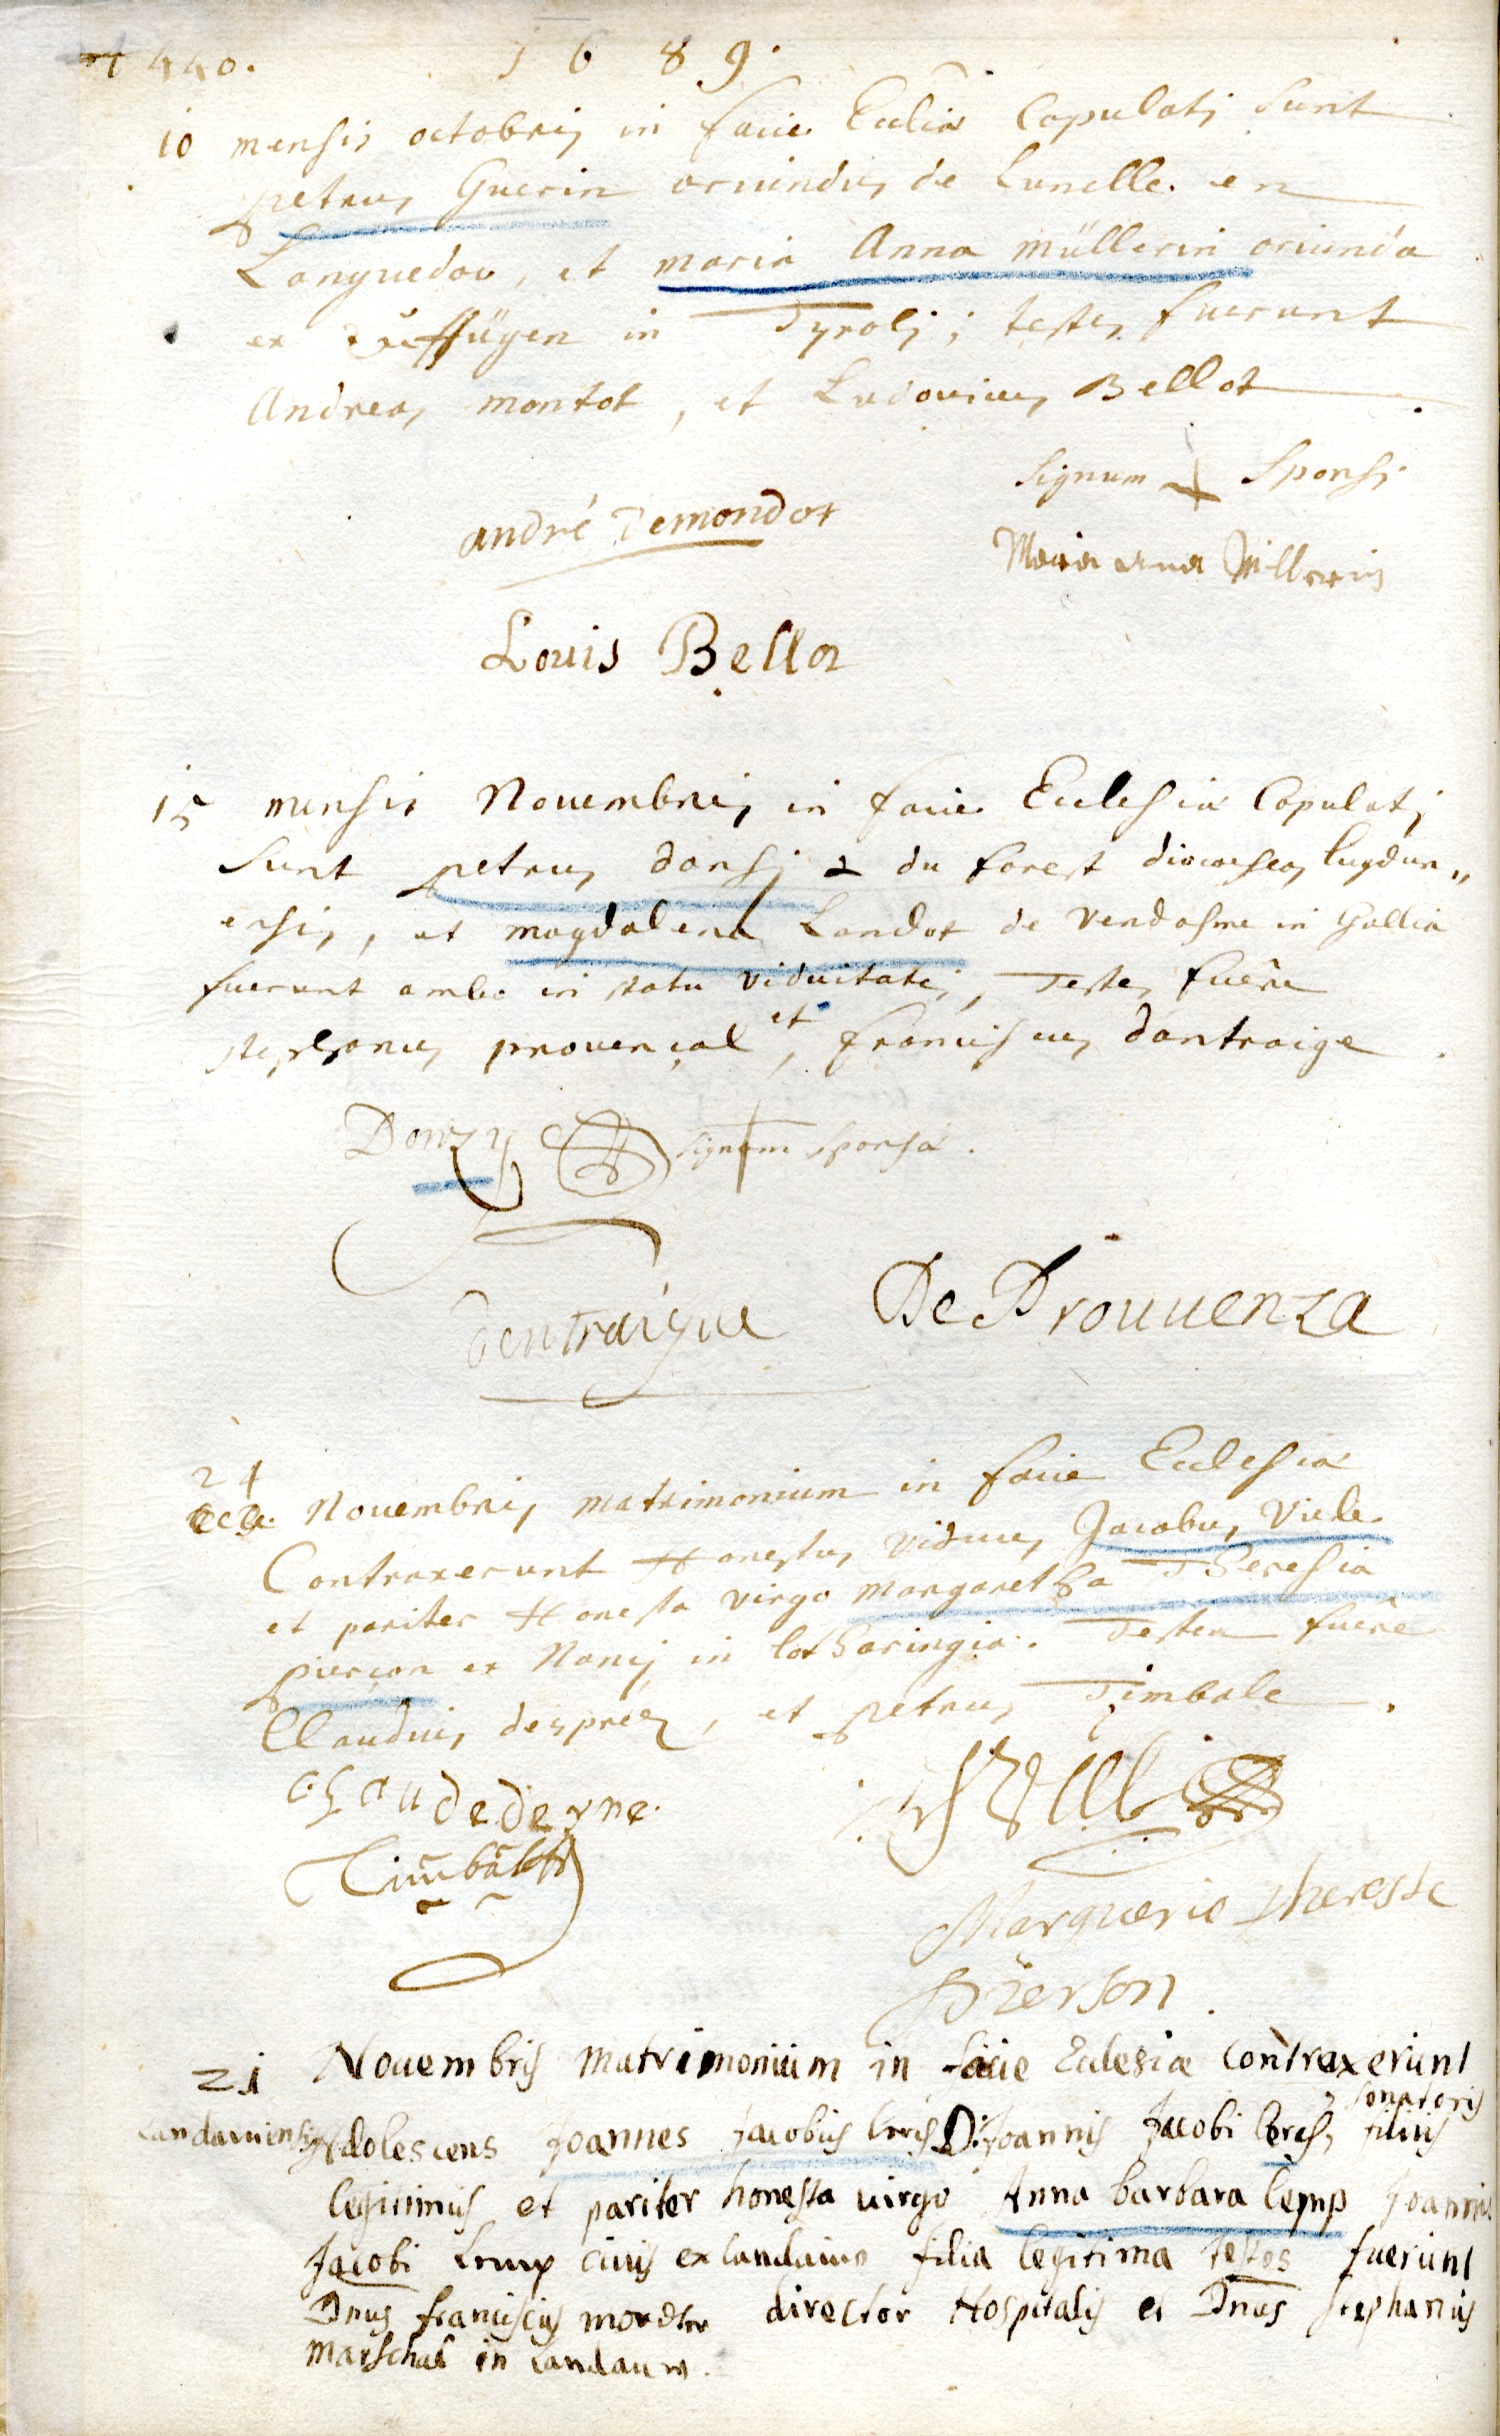 440. 1689.
10 mensis octobris in facie Ecclia Copulati sunt
petrus Guerin oriundus de Lunelle en
Languedou, et maria Anna müllerin oriunda
ex in Tyroli; testes fuerunt
Andreas montot, et Ludovicus Bellot
Signum + Sponsi
andré Demondot
Maria anna Millerin
Louis Bellot
15 mensis Nouembris in facie Ecclesia Copulati
sunt petrus donsi du forest dioecseos lugdun„
ensis, et magdalena Landot de Vendosme in Gallia
fuerunt ambo in statu viduitatis, Testes fuêre
stephanus prouençal et, franciscus dantraige
Donzy signum sponsa.
De Prouuenza
dentraigue
24
Nouembris matrimonium in facie Ecclesia
Contraxerunt Honestus viduus Jacobus Viele
et pariter Honesta virgo margaretha Theresia
pierçon ex Nancij in lotharingia. Testes fuêre
Claudius desprèz, et petrus Timbale
Timbal
Marguerie theresse
Pierson.
21 Nouembris matrimonium in facie Eclesiæ contraxerunt
senatoris
Landauiensis Adolescens Joannes Jacobus D: Joannis Jacobi filius
legitimus et pariter honesta uirgo Anna barbara lemp Joannis
Jacobi Lemp ciuis ex landauio filia legitima testes fuerunt
Dnus franciscus director Hospitalis et Dnus stephanus
marschal in Landauw.